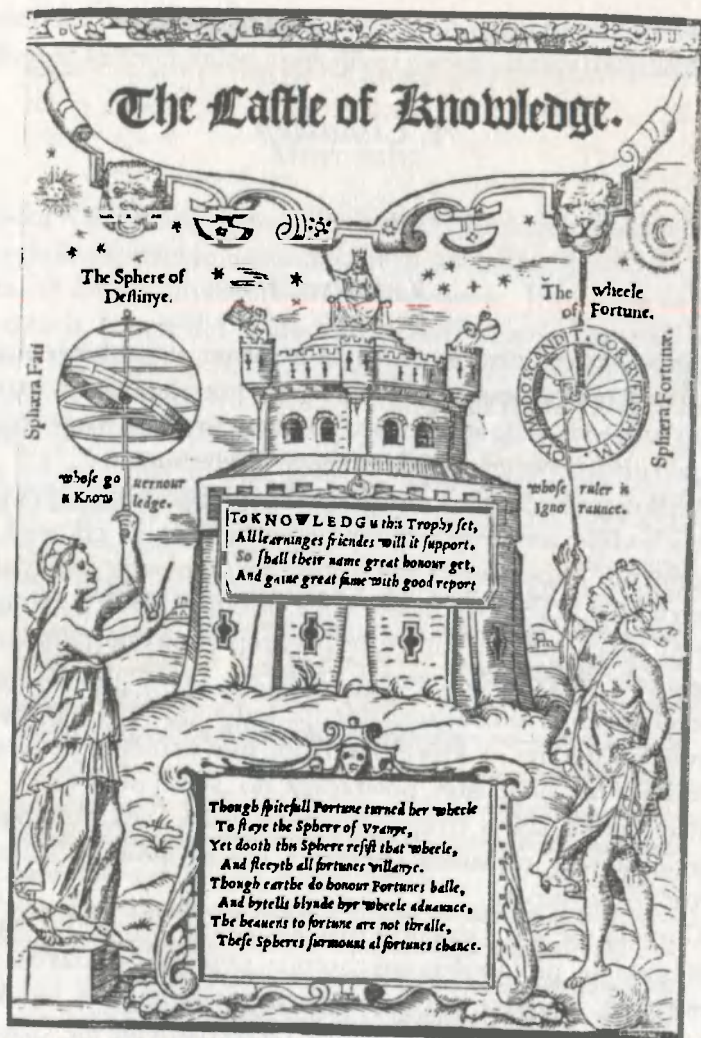 The Castle of Knowledge.
The Sphere of
Destinye.
The wheele
of Fortune.
Sphæra Fati
Sphæra Fortunæ
QVOMODO SCANDIT. CORRVET STATIM.
whose gouernour
is Knowledge.
whose ruler is
Ignoraunce.
To KNOWLEDG is this Trophy set,
All learninges friendes will it support.
So shall their name great honour get,
And gaine great fame with good report
Though spitefull Fortune turned her wheele
To staye the Sphere of Vranye,
Yet dooth this Sphere resist that wheele,
And fleeyth all fortunes villanye.
Though earthe do honour Fortunes balle,
And bytells blynde hyr wheele aduaunce,
The heauens to fortune are not thralle,
These Spheres surmount al fortunes chance.